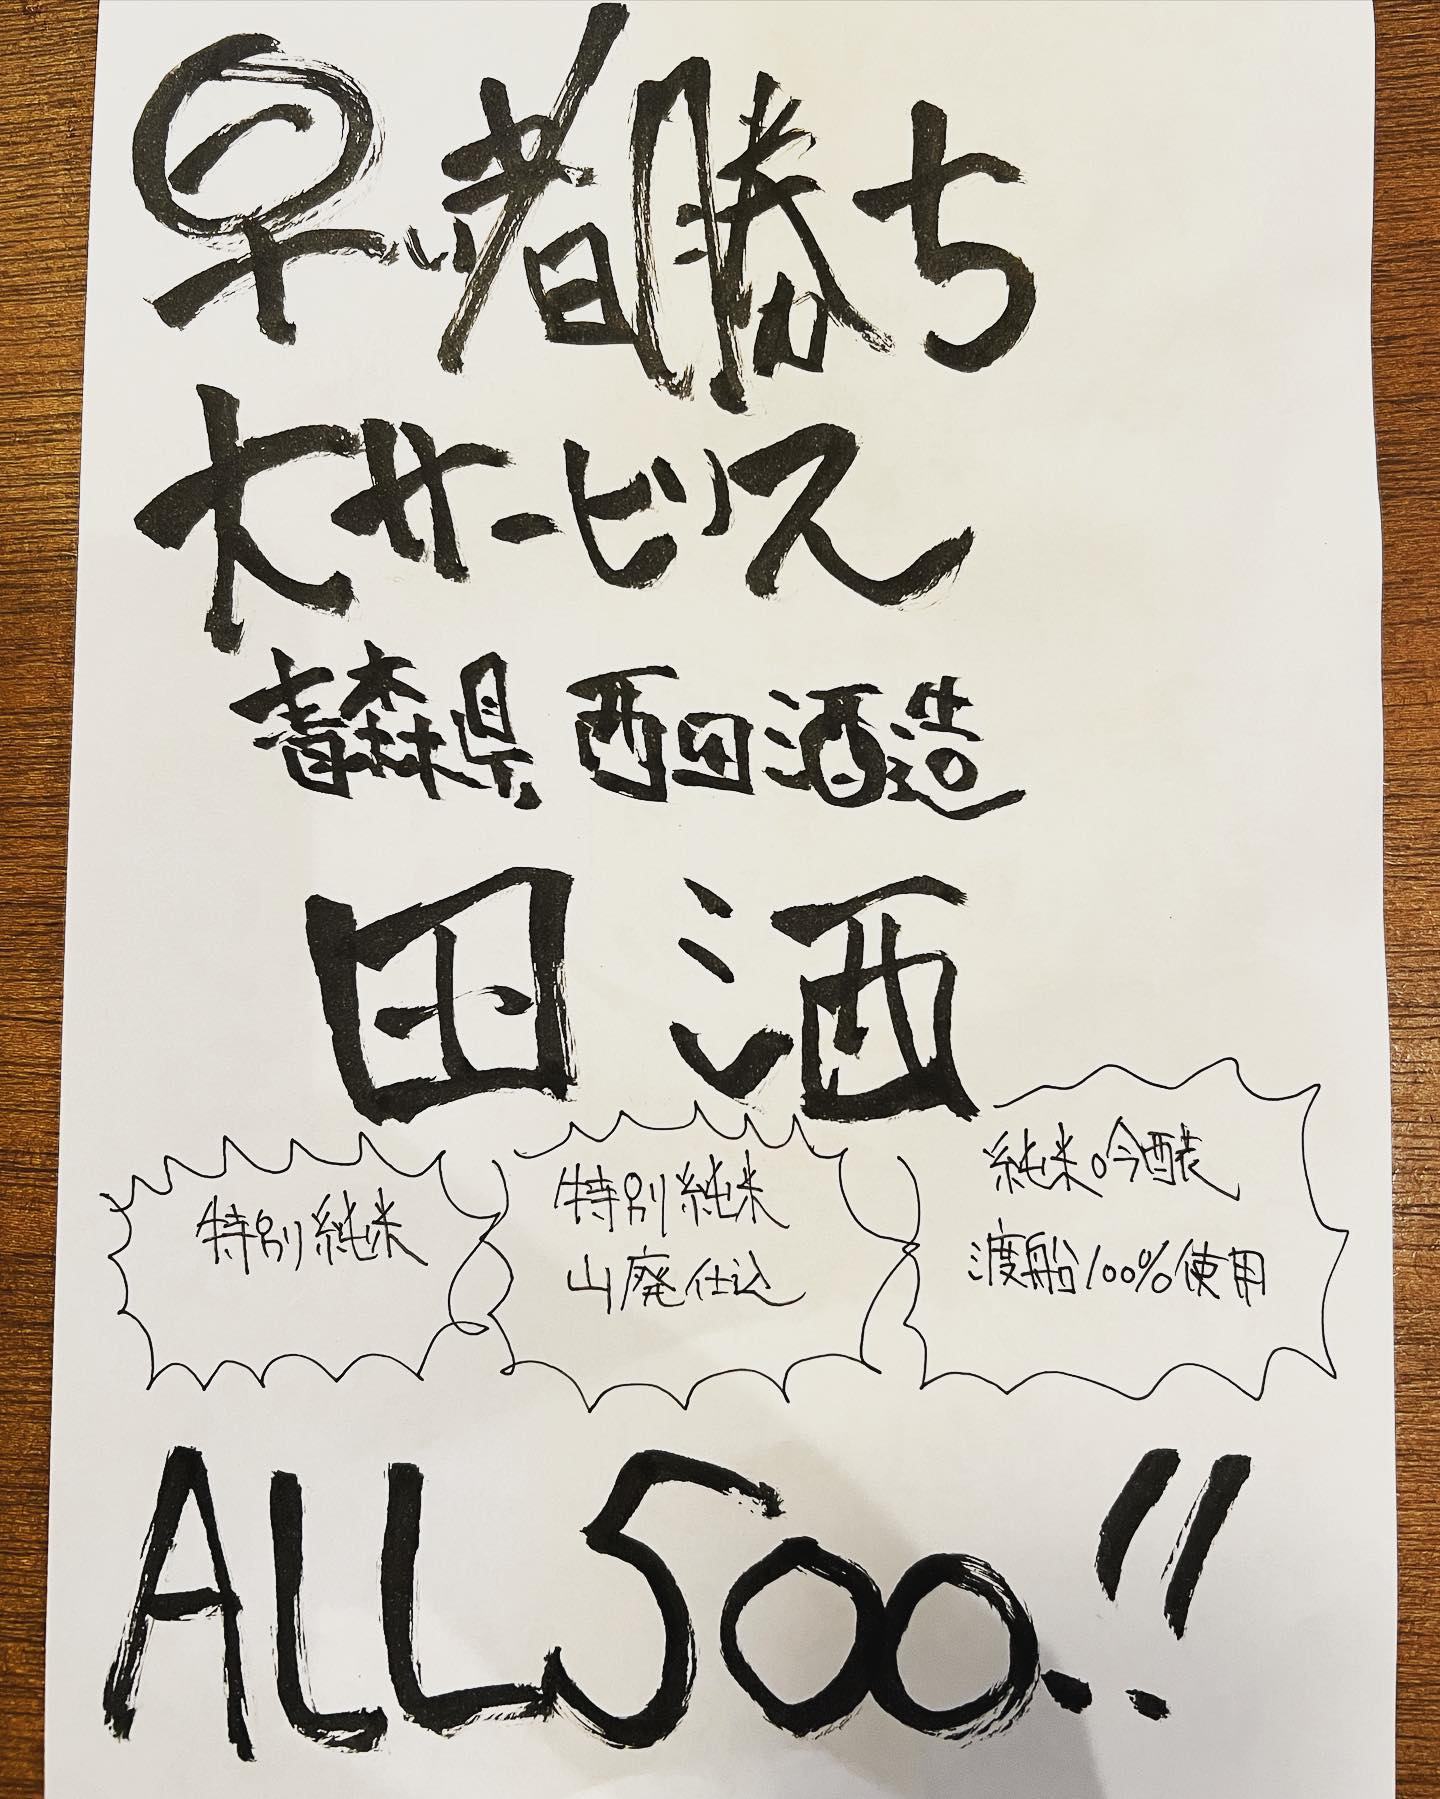 早い者勝ち
大サービス
青森県 西田酒造
田酒
特別純米
特別純米
山廃仕込
純米吟醸
渡船100%使用
ALL500!!